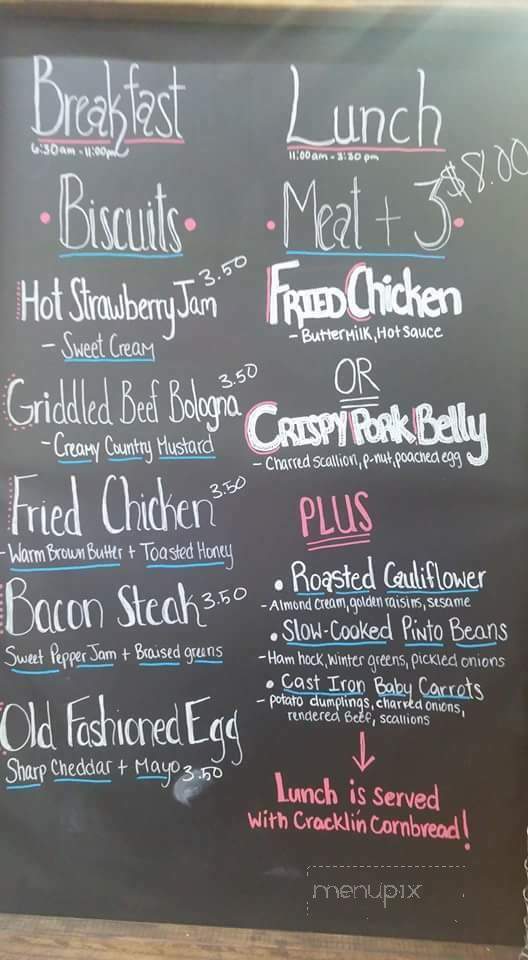 Breakfast
6:30am - 11:00pm
Biscuits
Hot Strawberry Jam 3.50
- Sweet Cream
Griddled Beef Bologna 3.50
- Creamy Country Mustard
Fried Chicken 3.50
- Warm Brown Butter + Toasted Honey
Bacon Steak 3.50
Sweet Pepper Jam + Braised greens
Old Fashioned Egg
Sharp Cheddar + Mayo 3.50
Lunch
11:00am - 3:30pm
Meat + 3 $8.00
FRIED Chicken
- ButterMilk, Hot Sauce
OR
CRISPY Pork Belly
- Charred scallion, p-nut, poached egg
PLUS
• Roasted Cauliflower
- Almond Cream, golden raisins, sesame
• Slow-Cooked Pinto Beans
- Ham hock, winter greens, pickled onions
• Cast Iron Baby Carrots
- potato dumplings, charred onions,
rendered Beef, scallions
Lunch is served
with Cracklin Cornbread!
menupix